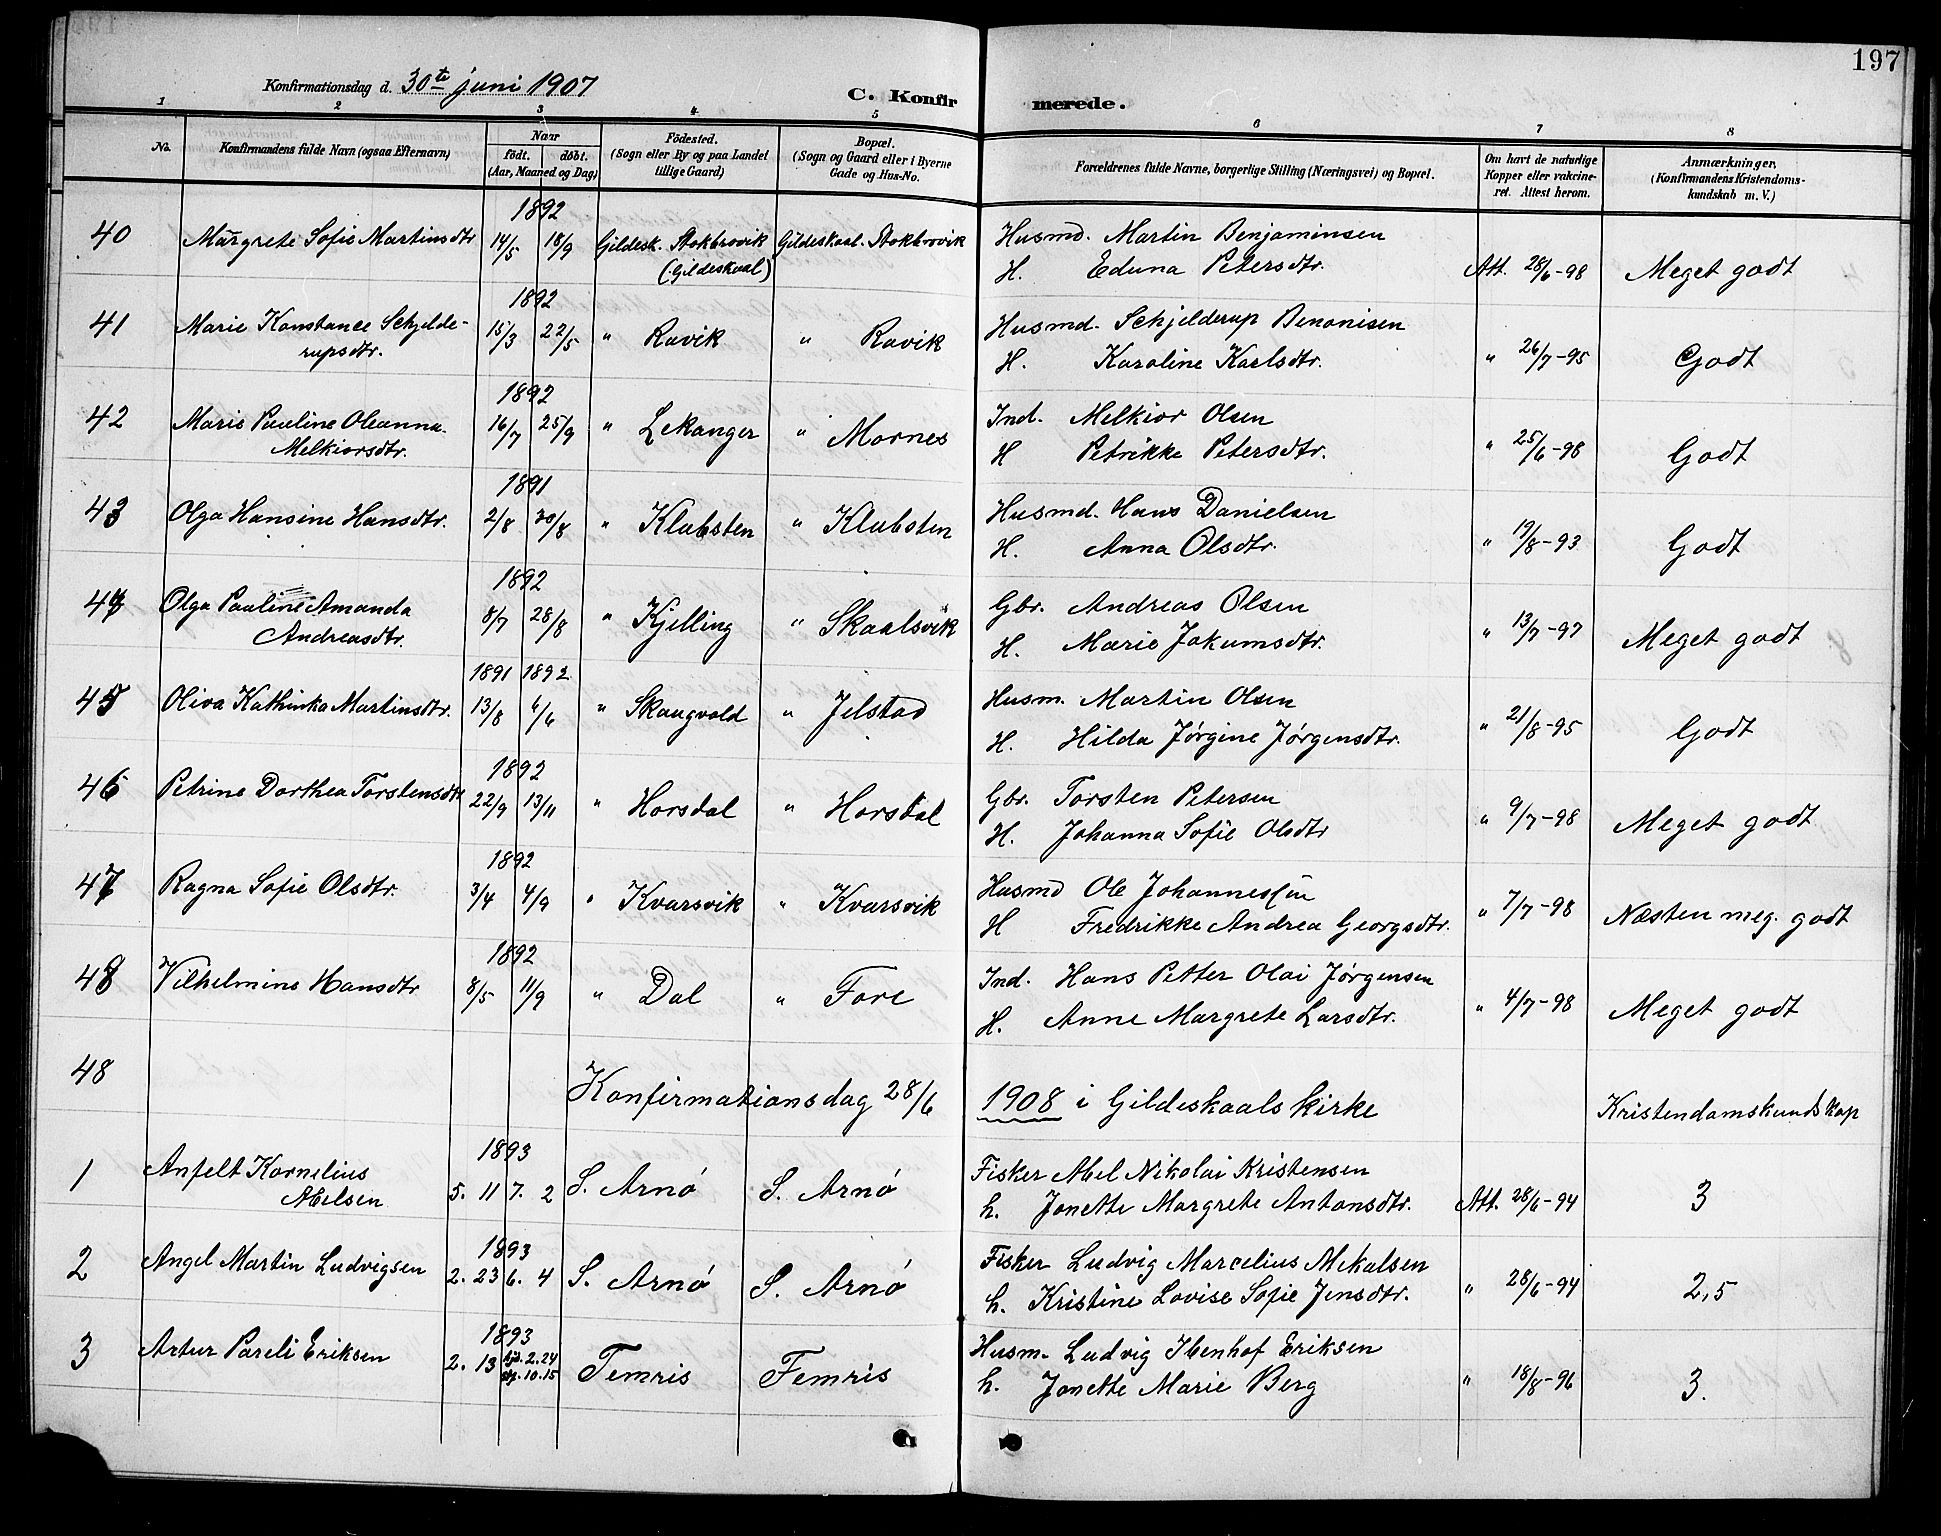 197
Konfirmationsdag d. 30te juni 1907
C. Konfirmerede.
1 2 3 4 5 6 7 8
No. Konfirmandens fulde Navn (ogsaa Efternavn) Naar født. døbt. (Aar, Maaned og Dag) Födested. (Sogn eller By og paa Landet tillige Gaard) Bopæl. (Sogn og Gaard eller i Byerne Gade og Hus-No. Forældrenes fulde Navne, borgerlige Stilling (Næringsvei) og Bopæl. Om havt de naturlige Kopper eller vakcineret. Attest herom. Anmærkninger, (Konfirmandens Kristendomskundskab m. V.)
1892
40 Margrete Sofie Martinsdtr 14/5 18/9 Gildesk. Stokbrovik Gildeskaal. Stokbrovik Husmd. Martin Benjaminsen
(Gildeskaal) H. Eduna Petersdtr. Att. 28/6-98 Meget godt
1892
41 Marie Konstance Schjelde- 15/3 22/5 " Ravik " Ravik Husmd. Schjelderup Benonisen
rupsdtr. H. Karoline Karlsdtr. " 26/7-95 Godt
1892
42 Marie Pauline Oleanna 16/7 25/9 " Lekanger " Mornes Ind. Melkior Olsen
Melkiorsdtr. H Petrikke Petersdtr. " 25/6-98 Godt
1891
43 Olga Hansine Hansdtr. 2/8 30/8 " Klubsten " Klubsten Husmd. Hans Danielsen
H. Anna Olsdtr. " 19/8-93 Godt
1892
44 Olga Pauline Amanda 8/7 28/8 " Kjelling " Skaalsvik Gbr. Andreas Olsen
Andreasdtr. H. Marie Jakumsdtr. " 13/7-97 Meget godt
1891 1892
45 Oliva Kathinka Martinsdtr. 13/8 6/6 " Skaugvold " Jelstad Husm. Martin Olsen
H. Hilda Jørgine Jørgensdtr. " 21/8-95 Godt
1892
46 Petrine Dorthea Torstensdtr 22/9 13/11 " Horsdal " Horsdal Gbr. Torsten Petersen
H. Johanna Sofie Olsdtr " 9/7-98 Meget godt
1892
47 Ragna Sofie Olsdtr. 3/4 4/9 " Kvarsvik " Kvarsvik Husmd Ole Johannessen
H Fredrikke Andrea Georgsdtr. " 7/7-98 Næsten meg. godt
1892
48 Vilhelmine Hansdtr 8/5 11/9 " Dal " Fore Ind. Hans Petter Olai Jørgensen
H. Anne Margrete Larsdtr. " 4/7-98 Meget godt
48 Konfirmationsdag 28/6 1908 i Gildeskaals kirke Kristendomskundskap
1893
1 Anfelt Kornelius Fisker Abel Nikolai Kristensen
Abelsen 5. 11 7. 2 S. Arnø S. Arnø h. Jonette Margrete Antonsdtr. Att. 28/6-94 3
1893
2 Angel Martin Ludvigsen 2. 23 6. 4 S. Arnø S. Arnø Fisker Ludvig Marcelius Mekalsen
h. Kristine Lovise Sofie Jensdtr. " 28/6-94 2,5
1893
3 Artur Pareli Eriksen 2. 13 2. 24 10. 15 Femris Femris Husm. Ludvig Ibenhof Eriksen
h. Jonette Marie Berg " 18/8-96 3.